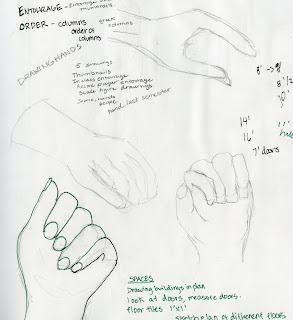 ENTOURAGE - Entourage and
thumbnails
ORDER - columns
order of
columns
greek
columns
DRAWING HANDS
5 drawings
Thumbnails
In class entourage
scale figure drawings
hand last semester
8' -> 9'
8 1/2
10'
11'
14'
16'
7' doors
SPACES
Drawing buildings in plan
look at doors, measure doors.
floor tiles 1'x1'
sketch plan of different floors